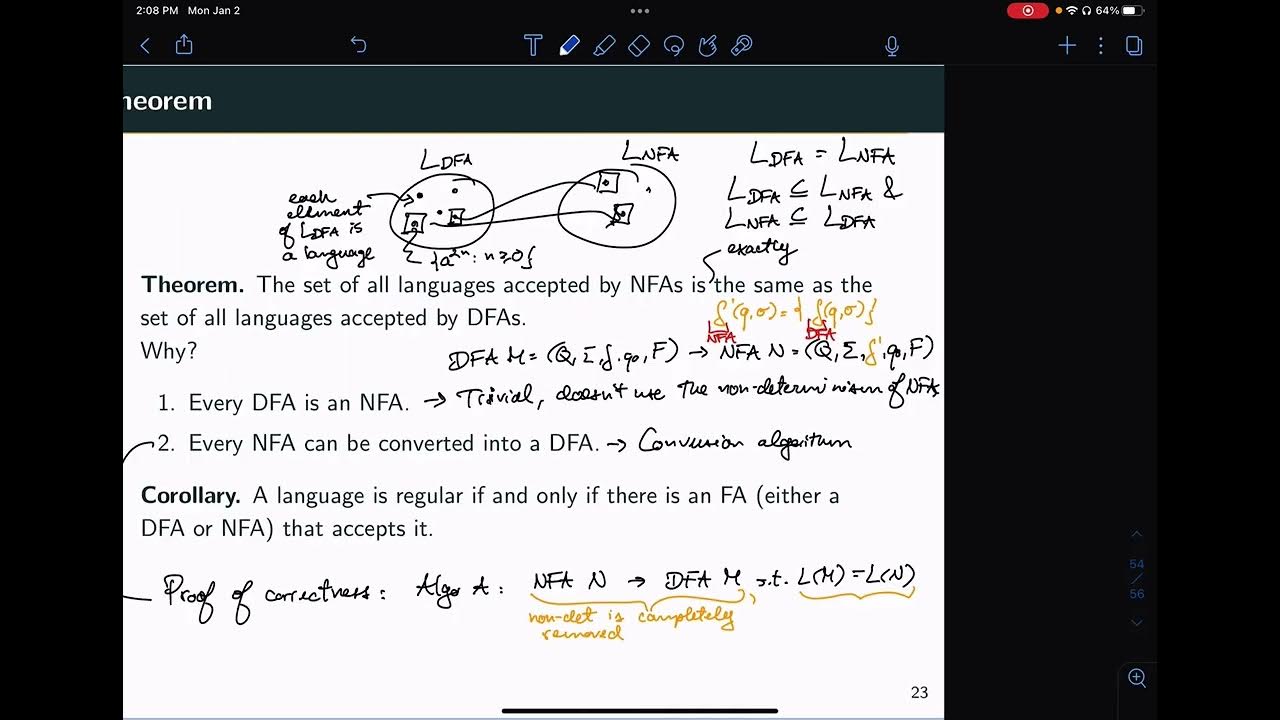 2:08 PM Mon Jan 2
64%
heorem
L DFA
L NFA
L DFA = L NFA
L DFA ⊆ L NFA &
L NFA ⊆ L DFA
exactly
each
element
of L DFA is
a language
{a²ⁿ : n ≥ 0}
Theorem. The set of all languages accepted by NFAs is the same as the
set of all languages accepted by DFAs.
δ'(q,σ) = {δ(q,σ)}
NFA
DFA
Why?
DFA M = (Q, Σ, δ, q₀, F) → NFA N = (Q, Σ, δ', q₀, F)
1. Every DFA is an NFA. → Trivial, doesn't use the non-determinism of NFAs
2. Every NFA can be converted into a DFA. → Conversion algorithm
Corollary. A language is regular if and only if there is an FA (either a
DFA or NFA) that accepts it.
Proof of correctness: Algo A: NFA N → DFA M s.t. L(M) = L(N)
non-det is completely
removed
54
/
56
23